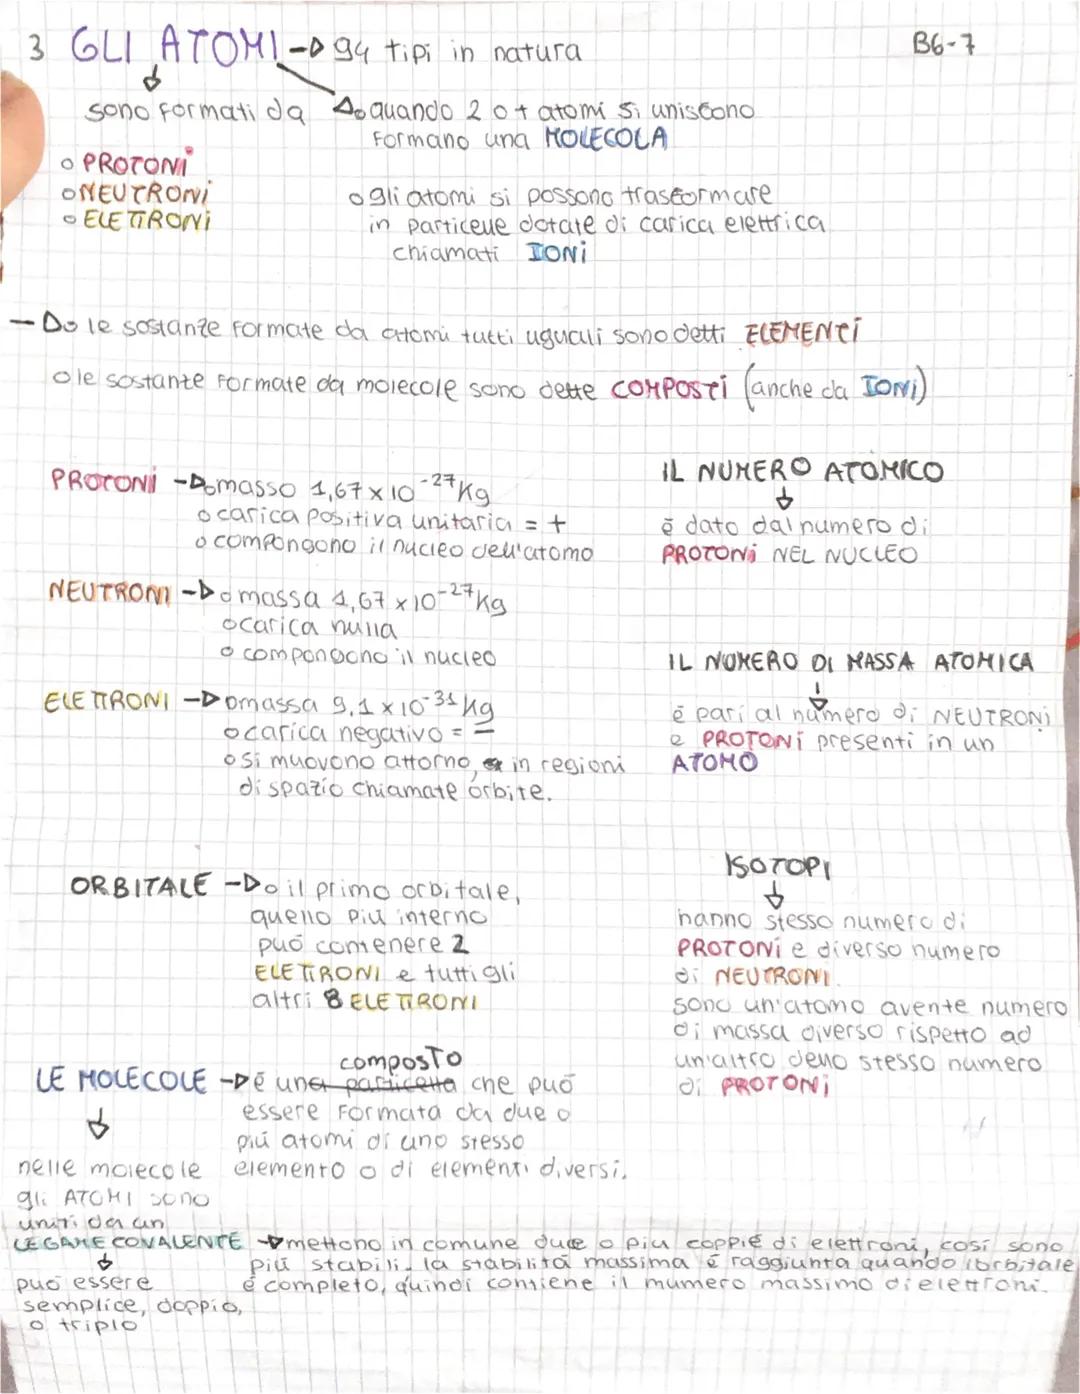 3 GLI ATOMI → 94 tipi in natura
B6-7
sono formati da
o PROTONI
o NEUTRONI
o ELETTRONI
o quando 2 o + atomi si uniscono
formano una MOLECOLA
o gli atomi si possono trasformare
in particelle dotate di carica elettrica
chiamati IONI
→ o le sostanze formate da atomi tutti uguali sono detti ELEMENTI
o le sostanze formate da molecole sono dette COMPOSTI (anche da IONI)
PROTONI → o masso 1,67 x 10⁻²⁷ Kg
o carica positiva unitaria = +
o compongono il nucleo dell'atomo
NEUTRONI → o massa 1,67 x 10⁻²⁷ Kg
o carica nulla
o compongono il nucleo
ELETTRONI → o massa 9,1 x 10⁻³¹ Kg
o carica negativo = -
o si muovono attorno, in regioni
di spazio chiamate orbite.
IL NUMERO ATOMICO
↓
è dato dal numero di
PROTONI NEL NUCLEO
IL NUMERO DI MASSA ATOMICA
↓
è pari al numero di NEUTRONI
e PROTONI presenti in un
ATOMO
ORBITALE → o il primo orbitale,
quello più interno
può contenere 2
ELETTRONI e tutti gli
altri 8 ELETTRONI
ISOTOPI
↓
hanno stesso numero di
PROTONI e diverso numero
di NEUTRONI.
sono un'atomo avente numero
di massa diverso rispetto ad
un'altro dello stesso numero
di PROTONI
composto
LE MOLECOLE → è una particella che può
essere formata da due o
più atomi di uno stesso
elemento o di elementi diversi.
↓
nelle molecole
gli ATOMI sono
uniti da un
LEGAME COVALENTE → mettono in comune due o più coppie di elettroni, così sono
più stabili. la stabilità massima è raggiunta quando l'orbitale
è completo, quindi contiene il numero massimo di elettroni.
↓
può essere
semplice, doppio,
o triplo